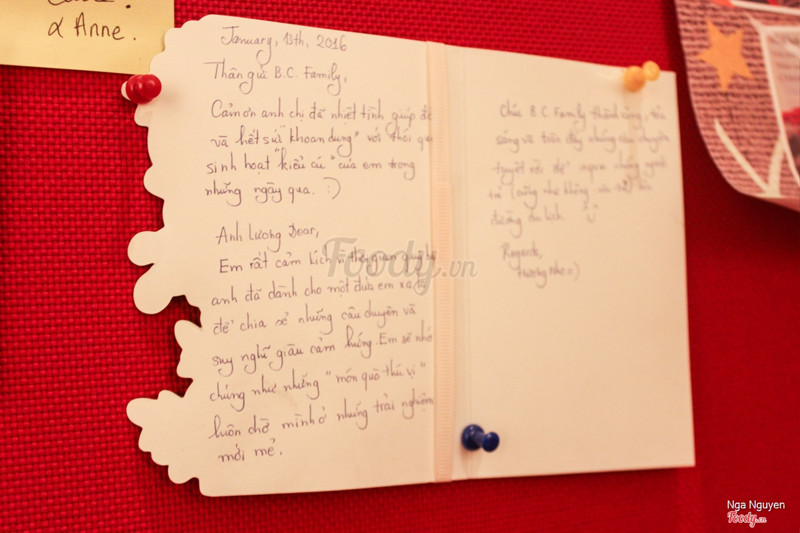 & Anne.
January, 13th, 2016
Thân gửi B.C. Family,
Cảm ơn anh chị đã nhiệt tình giúp đỡ
và hết sức "khoan dung" với thói qu
sinh hoạt "kiểu cú" của em trong
những ngày qua. :)
Anh Lương Dear,
Em rất cảm kích vì thời gian quý b
anh đã dành cho một đứa em xa lạ
để chia sẻ những câu duyên và
suy nghĩ giàu cảm hứng. Em sẽ nhớ
chúng như những "món quà thú vị"
luôn chờ mình ở những trải nghiệm
mới mẻ.
Chúc B.C. Family thành công, tỏa
sáng và tràn đầy những câu chuyện
tuyệt vời để
đường du lịch
Regards,
Foody.vn
Nga Nguyen
Foody.vn